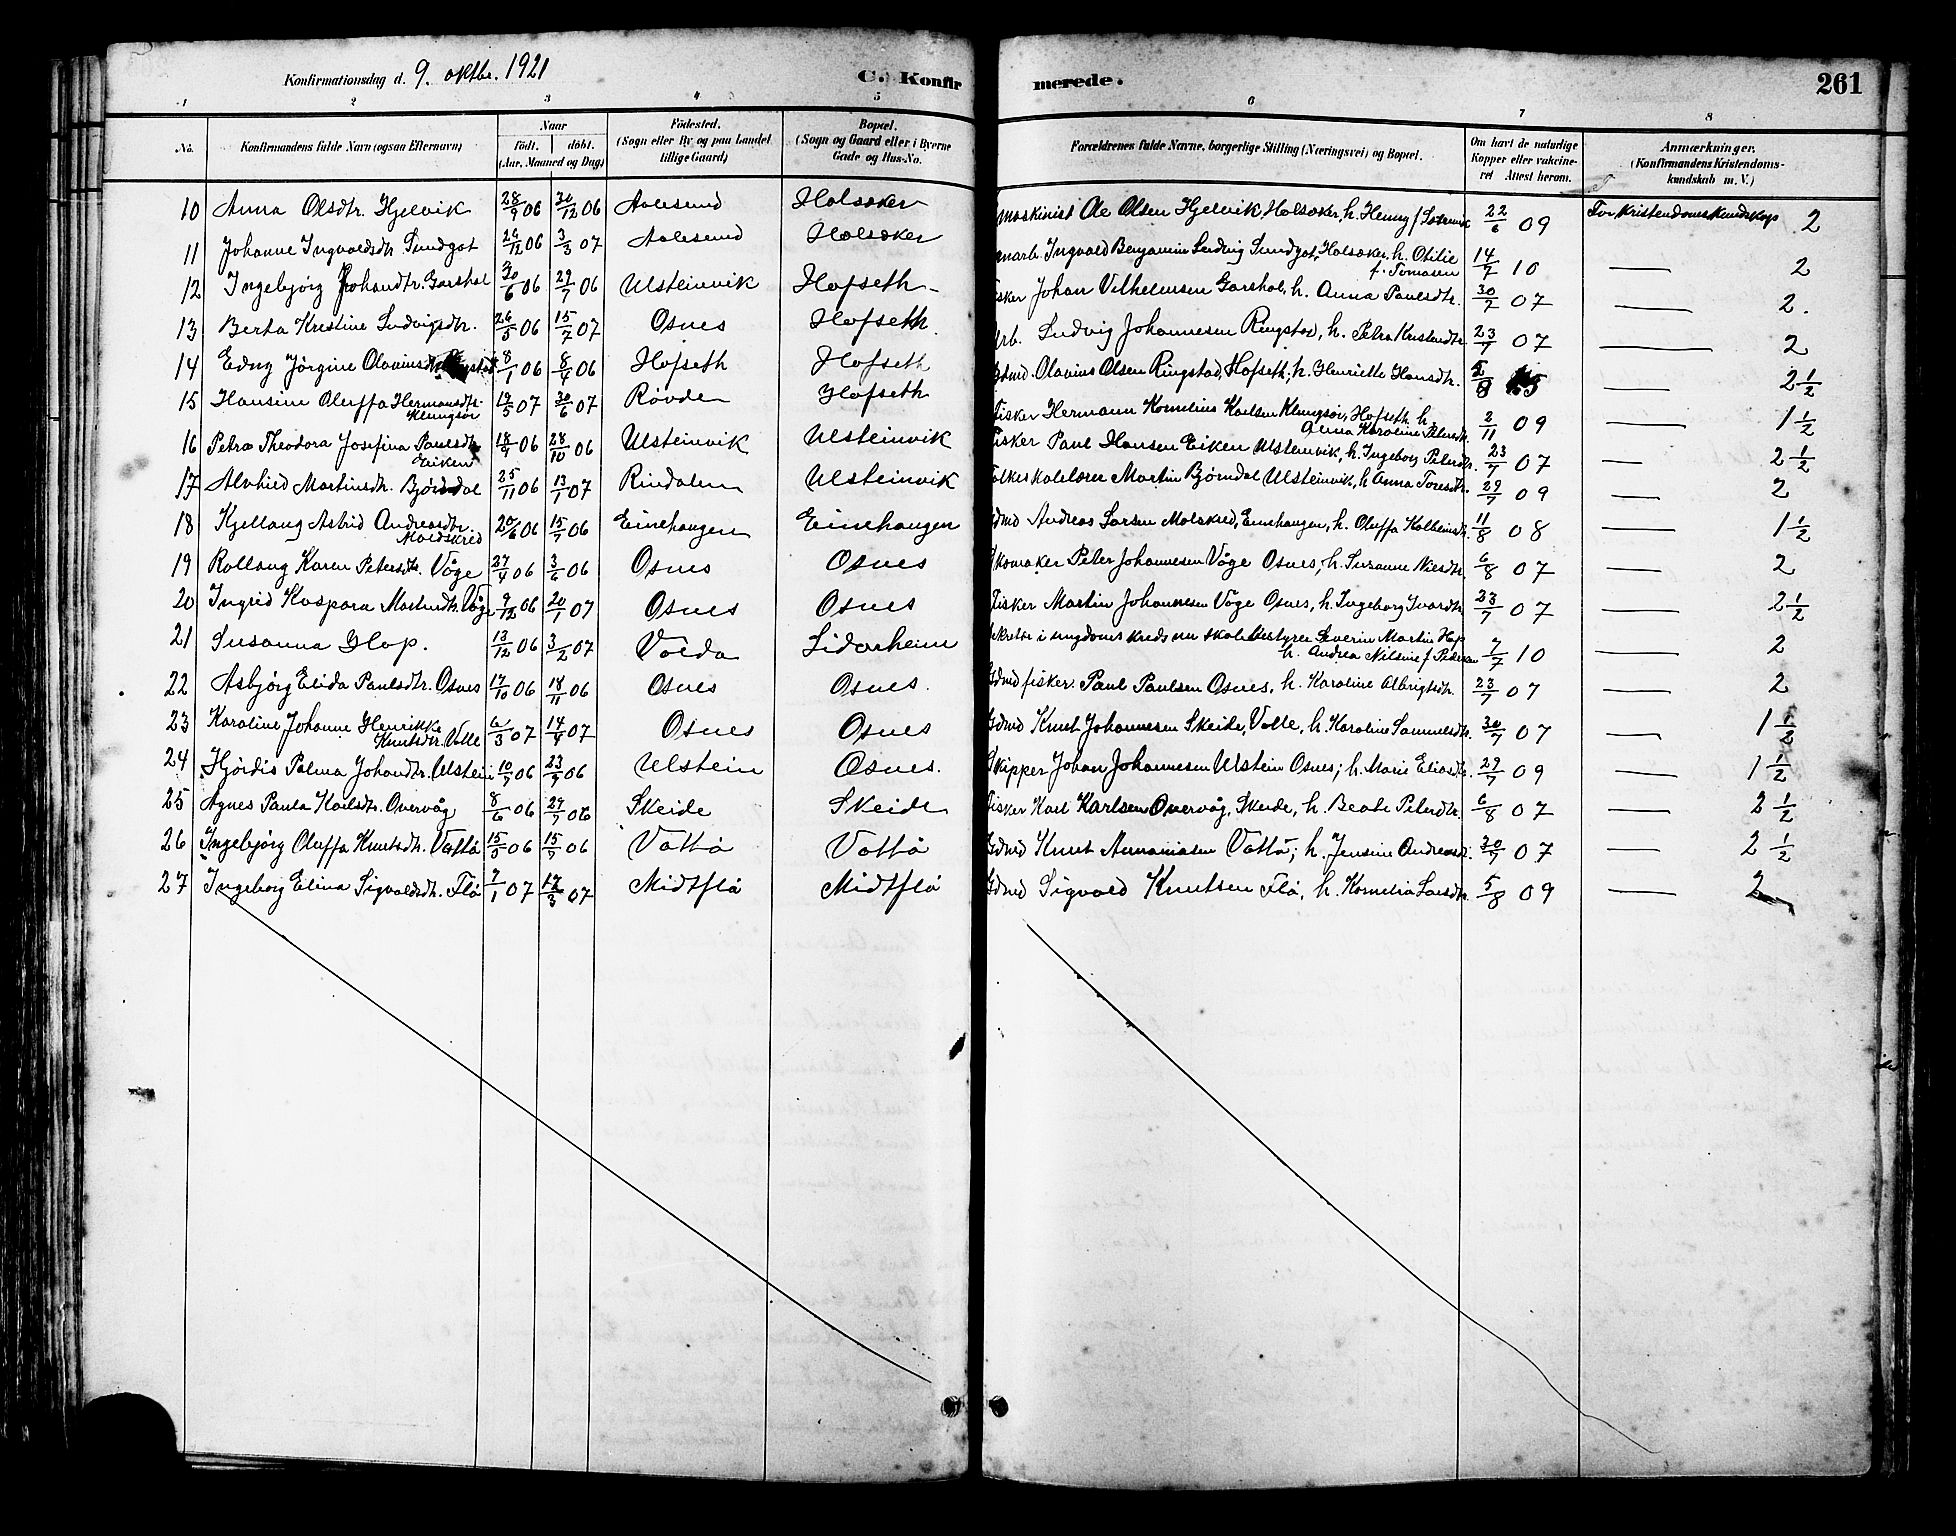 Konfirmationsdag d. 9. oktbr. 1921
C. Konfirmerede.
261
1 2 3 4 5 6 7 8
No. Konfirmandens fulde Navn (ogsaa Efternavn) Naar födt. döbt. (Aar, Maaned og Dag) Födested. (Sogn eller By og paa Landet tillige Gaard) Bopæl. (Sogn og Gaard eller i Byerne Gade og Hus-No. Forældrenes fulde Navne, borgerlige Stilling (Næringsvei) og Bopæl. Om havt de naturlige Kopper eller vakcineret Attest herom. Anmærkninger. (Konfirmandens Kristendomskundskab m. V.)
10 Anna Olsdtr. Hjelvik 28/9 06 30/12 06 Aalesund Holsøker maskinist Ole Olsen Hjelvik Holsøker, h. Henny f. 22/6 09 Tvr Kristendomskundskap 2
11 Johanne Ingvaldsdtr. Sundgot 26/12 06 3/3 07 Aalesund Holsøker Ingvald Benjamin Ludvig Sundgot, Holsøker, h. Otilie f. Tomasen 14/7 10 — 2
12 Ingebjørg Johandtr. Garshol 30/6 06 29/7 06 Ulsteinvik Hofseth fisker Johan Vilhelmsen Garshol, h. Anna Paulsdtr. 30/7 07 — 2.
13 Berta Kristine Ludvigsdtr. 26/5 06 15/7 07 Osnes Hofseth arb. Ludvig Johannesen Ringstad, h. Petra Kristendtr 23/7 07 — 2
14 Edny Jørgine Olavinsdtr. 8/1 06 8/4 06 Hofseth Hofseth Gdmd. Olavins Olsen Ringstad, Hofseth, h. Henriette Hansdtr. — 2 1/2
15 Hansine Oluffa Hermansdtr. Klungsør 19/5 07 30/6 07 Røvde Hofseth Fisker Hermann Kornelius Karlsen Klungsør, Hofseth h. Anna Karoline Petersdtr. 2/11 09 — 1 1/2
16 Petra Theodora Josefina Paulsdtr Eiken 18/9 06 28/10 06 Ulsteinvik Ulsteinvik Fisker Paul Hansen Eiken Ulsteinvik, h. Ingeborg Petersdtr. 23/7 07 — 2 1/2
17 Alvhild Martinsdtr. Bjørndal 25/11 06 13/1 07 Rindalen Ulsteinvik Folkeskolelærer Martin Bjørndal Ulsteinvik, h Anna Toresdtr. 29/7 09 — 2
18 Kjellaug Astrid Andreasdtr. Moldskred 20/6 06 15/7 06 Einehaugen Einehaugen Gdmd Andreas Larsen Molskred, Einehaugen, h. Oluffa Kolbeinsdtr. 11/8 08 — 1 1/2
19 Rollaug Karen Petersdtr. Våge 27/4 06 3/6 06 Osnes Osnes Skomaker Peter Johannesen Våge Osnes, h. Susanne Nilsdtr. 6/8 07 — 2
20 Ingrid Kaspara Martinsdtr. Våge 9/12 06 20/1 07 Osnes Osnes Fisker Martin Johannesen Våge Osnes, h. Ingeborg Ivarsdtr. 23/7 07 — 2 1/2
21 Susanna Hop. 13/12 06 3/2 07 Volda Lidarheim Sekretær i ungdomskredsen skolebestyrer Severin Martin Hop h. Andrea Nilsine f. Pedersen 7/7 10 — 2
22 Asbjørg Elida Paulsdtr. Osnes 17/10 06 18/11 06 Osnes Osnes. Gdmd fisker. Paul Paulsen Osnes, h. Karoline Albrigtsdtr. 23/7 07 — 2
23 Karoline Johanne Henrikke Knutsdtr. Valle 6/3 07 14/4 07 Osnes Osnes Gdmd Knut Johannesen Skeide, Valle, h. Karoline Samuelsdtr. 30/7 07 — 1 1/2
24 Hjørdis Palma Johandtr. Ulstein 10/7 06 23/9 06 Ulstein Osnes. Skipper Johan Johannesen Ulstein Osnes; h. Marie Eliasdtr. 29/7 09 — 1 1/2
25 Agnes Paula Karlsdtr. Overvåg 8/6 06 29/7 06 Skeide Skeide Fisker Karl Karlsen Overvåg, Skeide, h. Beate Petersdtr. 6/8 07 — 2 1/2
26 Ingebjørg Oluffa Knutsdtr. Vattø 15/5 06 15/7 06 Vattø Vattø Gdmd Knut Annaniasen Vattø; h. Jensine Andreasdt. 30/7 07 — 2 1/2
27 Ingeborg Elina Sigvaldsdtr. Flø 7/1 07 17/3 07 Midtflø Midtflø Gdmd Sigvald Knutsen Flø, h. Kornelia Larsdtr. 5/8 09 — 2